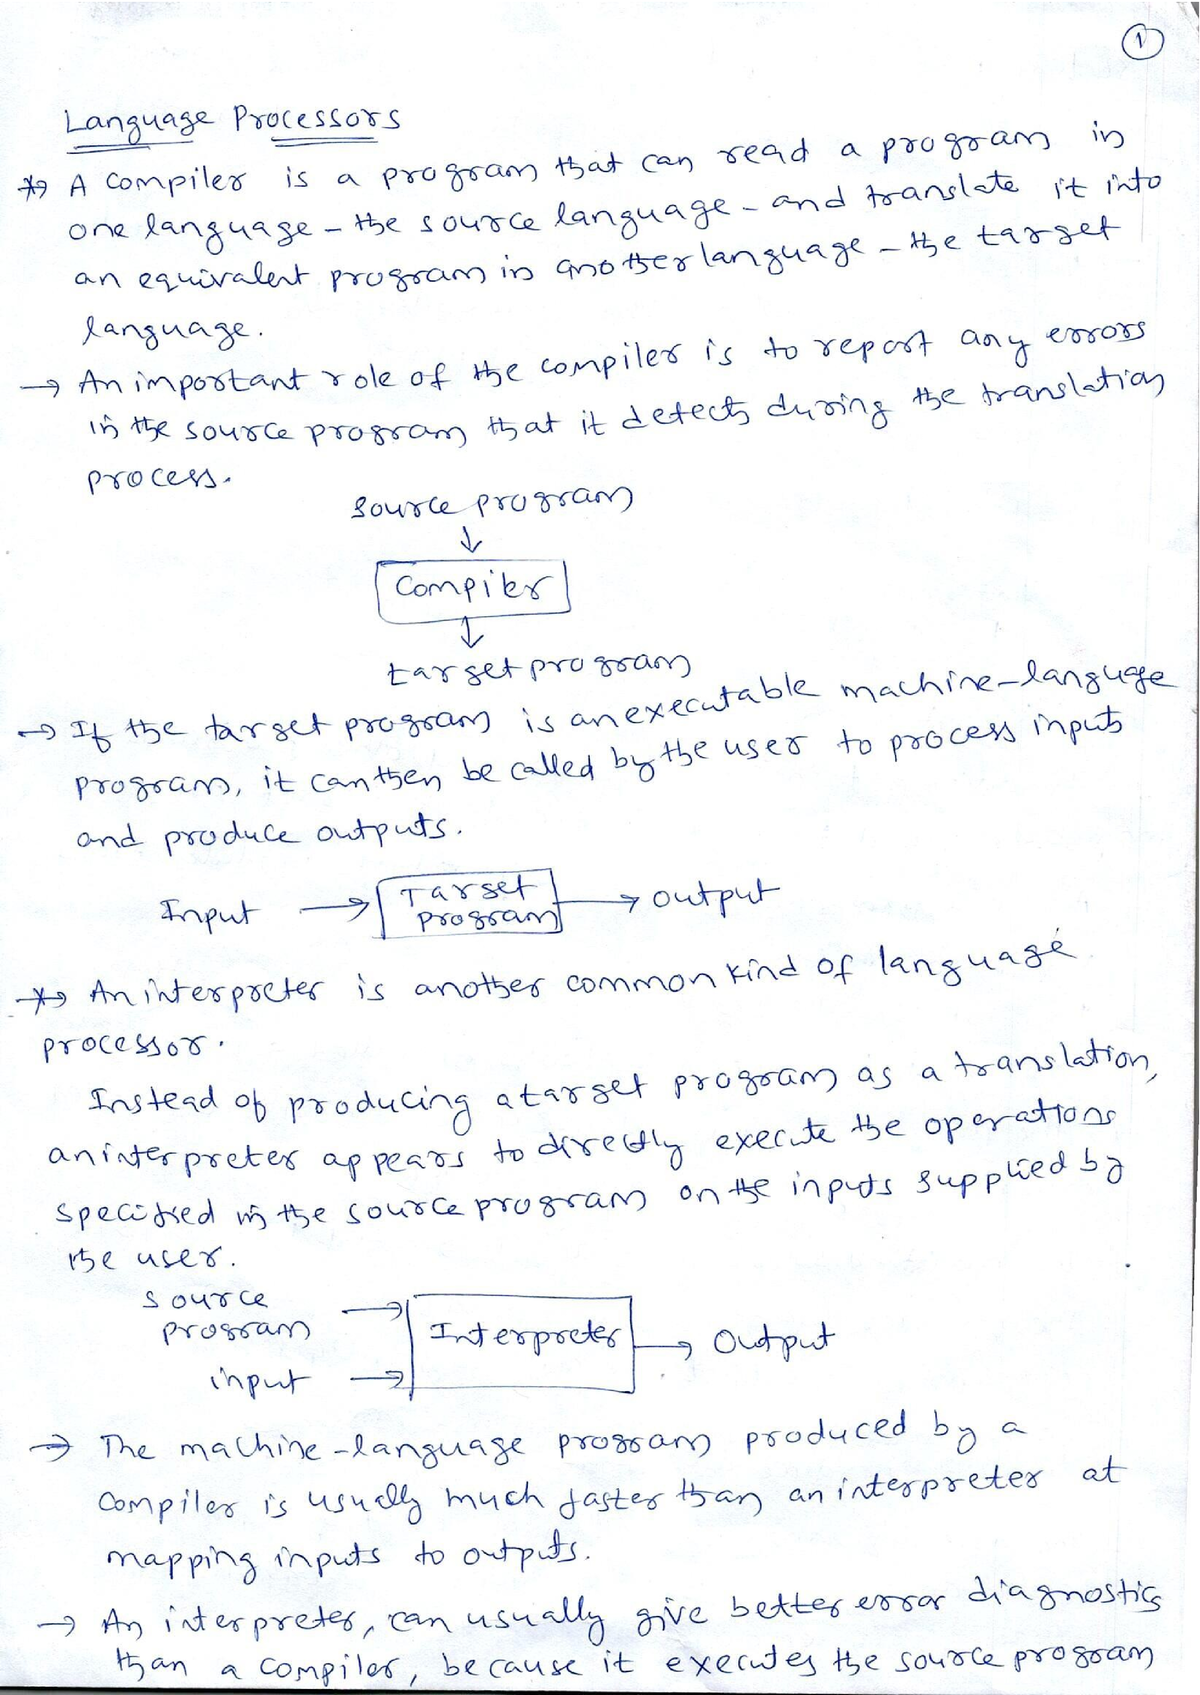 1
Language Processors
* A compiler is a program that can read a program in
one language - the source language - and translate it into
an equivalent program in another language - the target
language.
→ An important role of the compiler is to report any errors
in the source program that it detects during the translation
process.
Source program
↓
Compiler
↓
target program
→ If the target program is an executable machine-language
program, it can then be called by the user to process inputs
and produce outputs.
Input → Target → output
program
* An interpreter is another common kind of language
processor.
Instead of producing a target program as a translation,
an interpreter appears to directly execute the operations
specified in the source program on the inputs supplied by
the user.
source →
program Interpreter → Output
input →
→ The machine-language program produced by a
compiler is usually much faster than an interpreter at
mapping inputs to outputs.
→ An interpreter, can usually give better error diagnostics
than a compiler, because it executes the source program